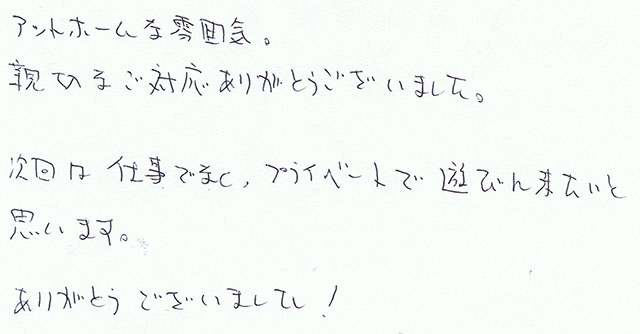 アットホームな雰囲気。
親切なご対応ありがとうございました。
次回は仕事でなく、プライベートで遊びに来たいと
思います。
ありがとうございました！